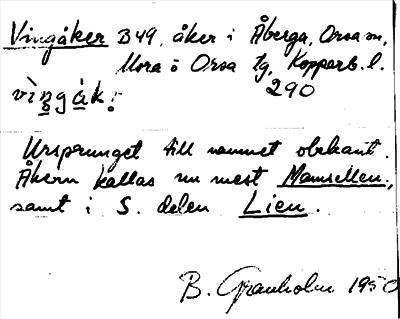 Vingåker B49, åker i Åberga, Orsa sn,
Mora o Orsa tg, Kopparb. l.
vìŋgàk:
290
Ursprunget till namnet obekant.
Åkern kallas nu mest Mamsellen,
samt i S. delen Lien.
B. Granholm 1950